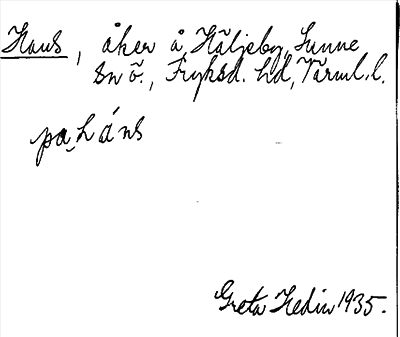 Haus, åker å Häljeby, Sunne
sn ö., Fryksd. hd, Värml. l.
pa håns
Greta Hedin 1935.